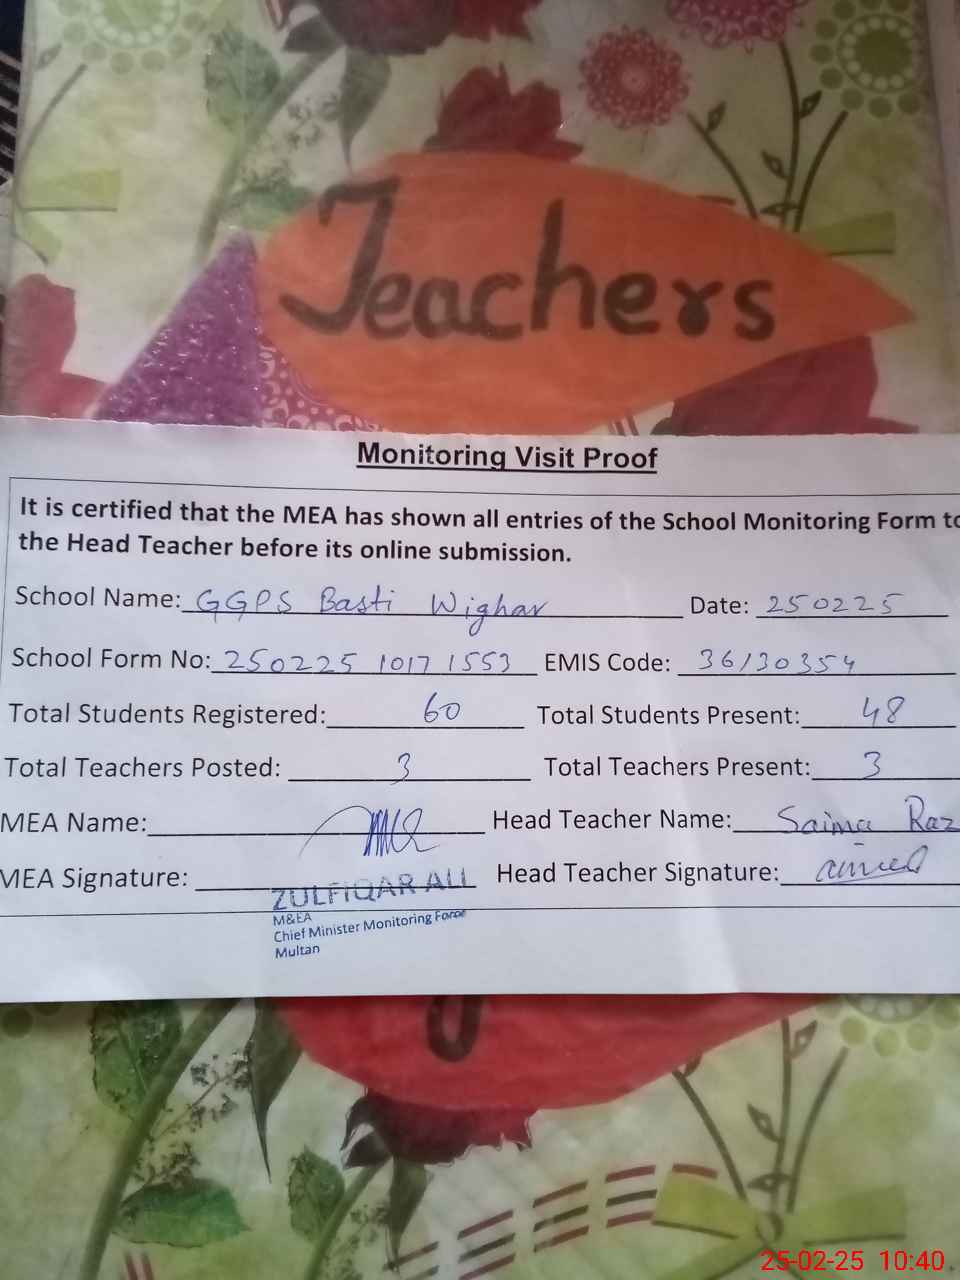 Teachers
Monitoring Visit Proof
It is certified that the MEA has shown all entries of the School Monitoring Form to
the Head Teacher before its online submission.
School Name: GGPS Basti Wighar Date: 250225
School Form No: 250225 1017 1553 EMIS Code: 36130354
Total Students Registered: 60 Total Students Present: 48
Total Teachers Posted: 3 Total Teachers Present: 3
MEA Name: Head Teacher Name: Saima Raz
MEA Signature: Head Teacher Signature:
ZULFIQAR ALI
M&EA
Chief Minister Monitoring Force
Multan
25-02-25 10:40